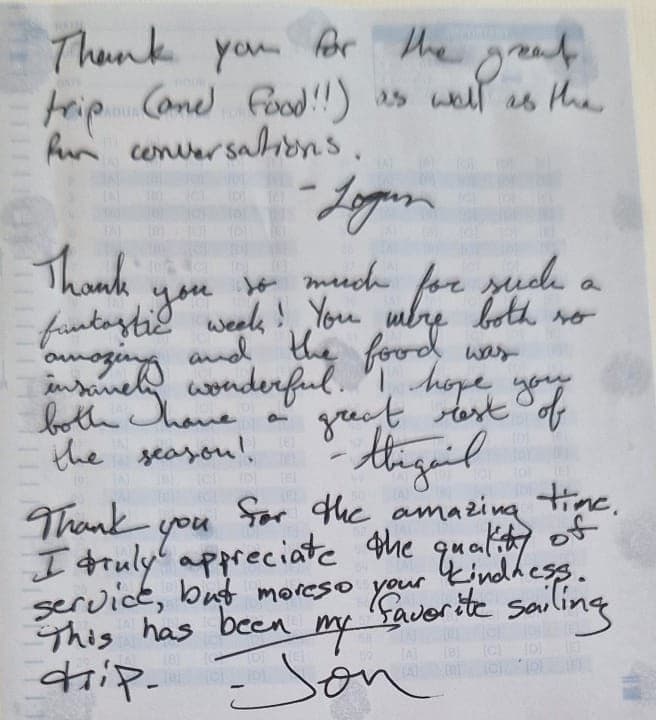 Thank you for the great
trip (and food!!) as well as the
fun conversations.
- Logan
Thank you so much for such a
fantastic week! You were both so
amazing and the food was
insanely wonderful. I hope you
both have a great rest of
the season! - Abigail
Thank you for the amazing time.
I truly appreciate the quality of
service, but moreso your kindness.
This has been my favorite sailing
trip. - Jon